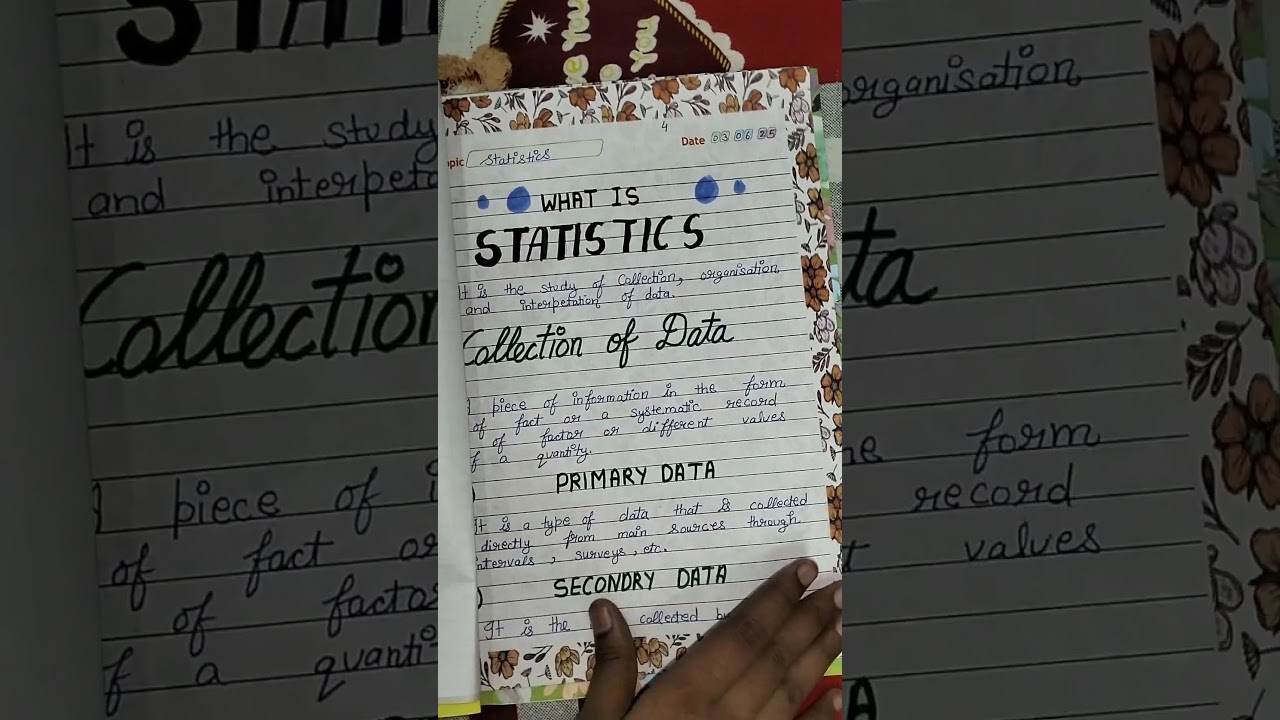 ve You
o You
4
opic Statistics
Date 03 06 25
WHAT IS
STATISTICS
It is the study of Collection, organisation,
and interpetation of data.
Collection of Data
piece of information in the form
of fact or a systematic record
of factor or different values
f a quantity.
PRIMARY DATA
It is a type of data that is collected
directly from main sources through
ntervals, surveys, etc.
SECONDRY DATA
It is the collected